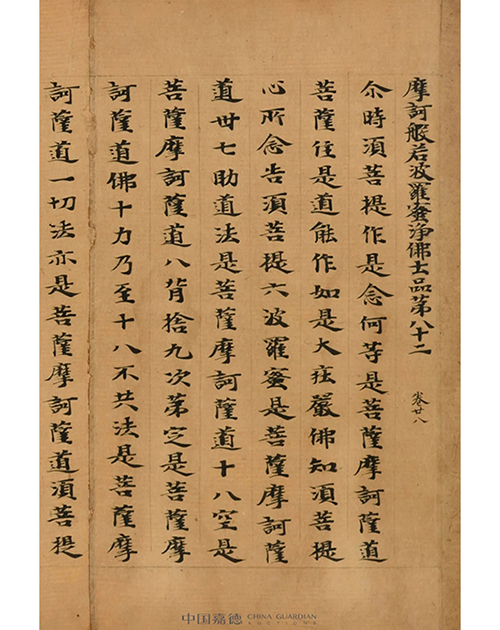 摩訶般若波羅蜜淨佛士品第八十二 卷廿八
尒時須菩提作是念何等是菩薩摩訶薩道
菩薩住是道能作如是大莊嚴佛知須菩提
心所念告須菩提六波羅蜜是菩薩摩訶薩
道卅七助道法是菩薩摩訶薩道十八空是
菩薩摩訶薩道八背捨九次第定是菩薩摩
訶薩道佛十力乃至十八不共法是菩薩摩
訶薩道一切法亦是菩薩摩訶薩道須菩提
中国嘉德 CHINA GUARDIAN AUCTIONS